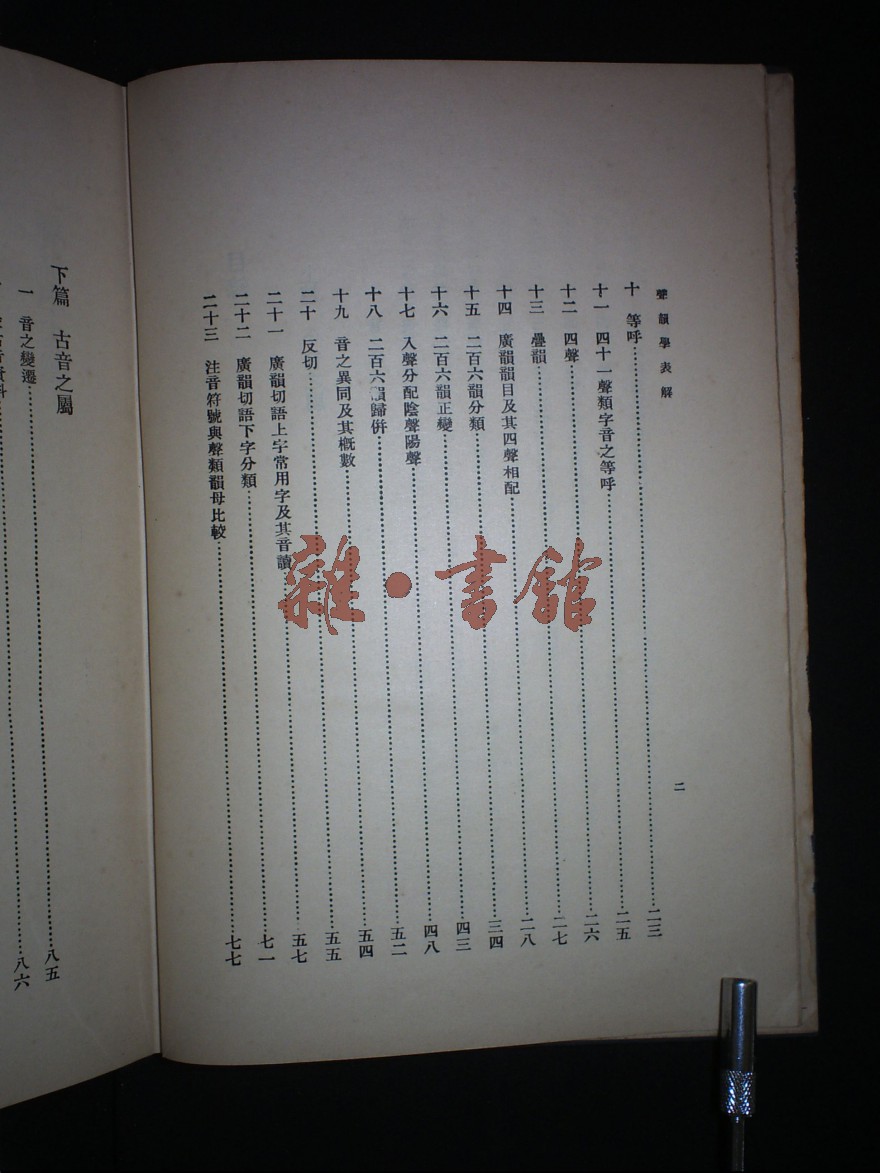 聲韻學表解
十　等呼……二三
十一　四十一聲類字音之等呼……二五
十二　四聲……二六
十三　疊韻……二七
十四　廣韻韻目及其四聲相配……二八
十五　二百六韻分類……三四
十六　二百六韻正變……四三
十七　入聲分配陰聲陽聲……四八
十八　二百六韻歸倂……五二
十九　音之異同及其槪數……五四
二十　反切……五五
二十一　廣韻切語上字常用字及其音讀……五七
二十二　廣韻切語下字分類……七一
二十三　注音符號與聲類韻母比較……七七
二
下篇　古音之屬……八五
一　音之變遷……八六
雜·書館